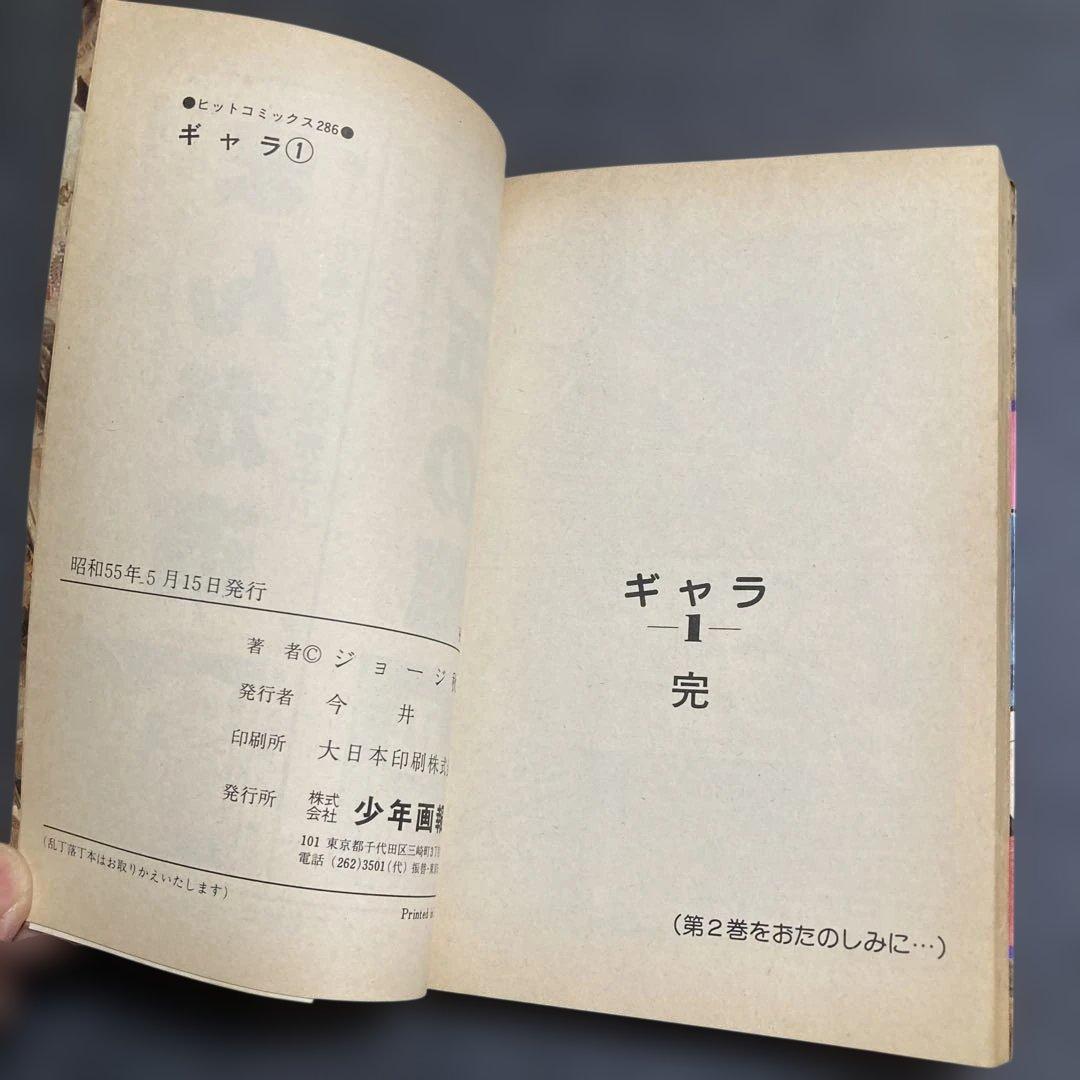 ●ヒットコミックス286●
ギャラ①
昭和55年5月15日発行
著者© ジョージ
発行者 今井
印刷所 大日本印刷株式
発行所 株式会社 少年画報
101 東京都千代田区三崎町3丁
電話 (262)3501(代) 振替・東京
(乱丁落丁本はお取りかえいたします)
Printed in
ギャラ
—1—
完
(第2巻をおたのしみに…)